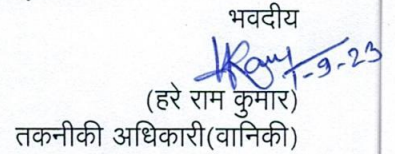 भवदीय
1-9-23
(हरे राम कुमार)
तकनीकी अधिकारी(वानिकी)